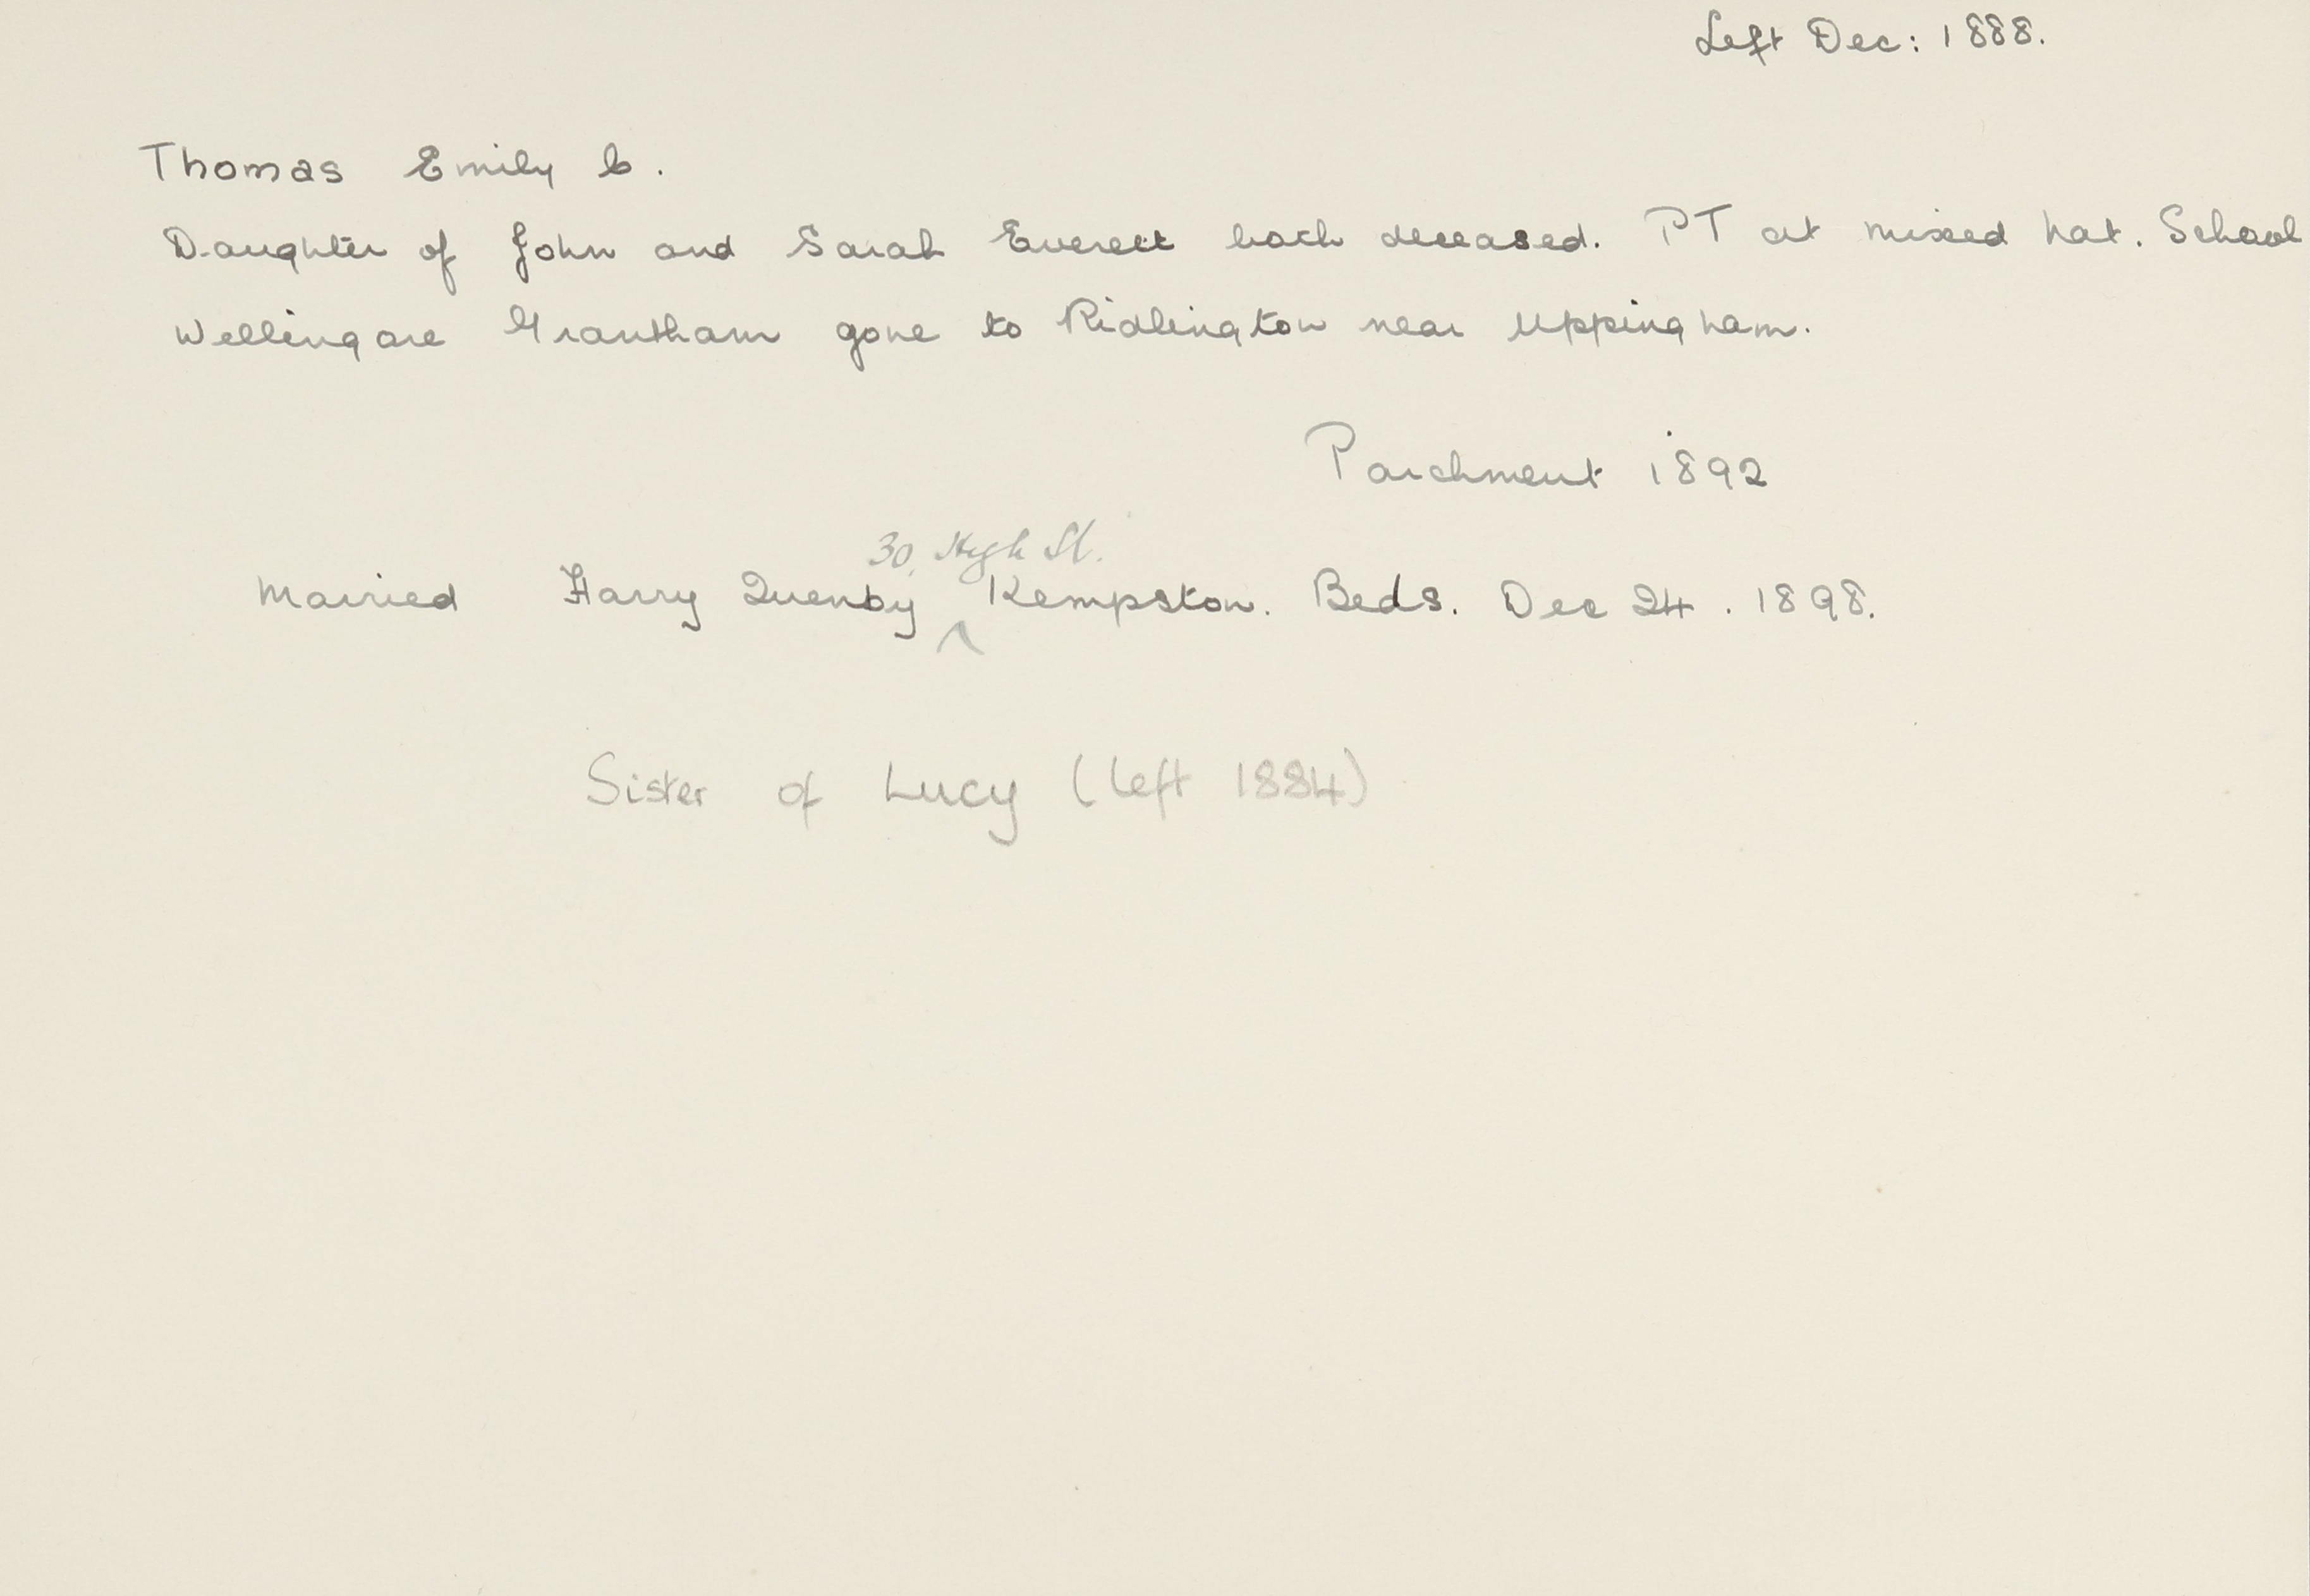 Left Dec: 1888.
Thomas Emily C.
Daughter of John and Sarah Everett both deceased. PT at mixed Nat. School
Wellingore Grantham gone to Ridlington near Uppingham.
Parchment 1892
30, High St.
Married Harry Quenby ^ Kempston. Beds. Dec 24. 1898.
Sister of Lucy (left 1884)